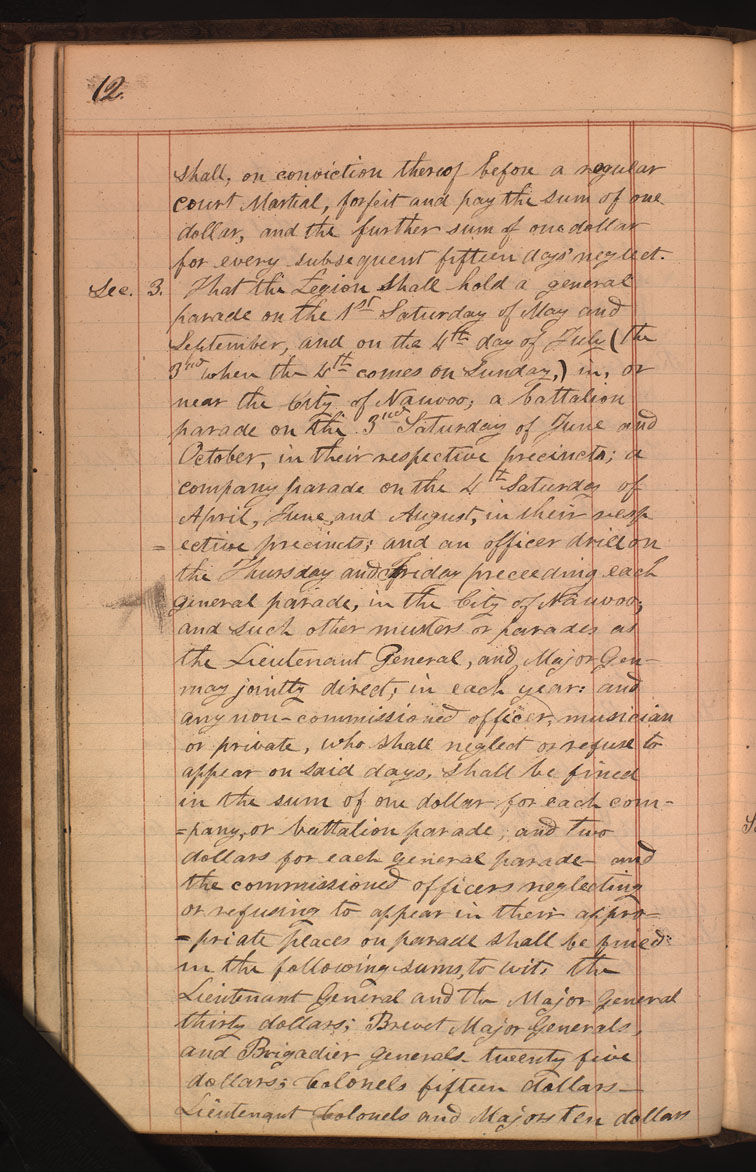 12.
shall, on conviction thereof before a regular
court Martial, forfeit and pay the sum of one
dollar, and the further sum of one dollar
for every subsequent fifteen days' neglect.
Sec. 3. That the Legion shall hold a general
parade on the 1st Saturday of May and
September, and on the 4th day of July (the
3rd when the 4th comes on Sunday,) in, or
near the City of Nauvoo; a battalion
parade on the 3rd Saturday of June and
October, in their respective precincts; a
company parade on the 4th Saturday of
April, June, and August, in their resp
= ective precincts; and an officer drill on
the Thursday and Friday preceeding each
general parade, in the City of Nauvoo;
and such other musters or parades as
the Lieutenant General, and Major Gen-
may jointly direct, in each year: and
any non-commissioned officer, musician
or private, who shall neglect or refuse to
appear on said days, shall be fined
in the sum of one dollar for each com-
=pany, or battalion parade, and two
dollars for each general parade and
the commissioned officers neglecting
or refusing to appear in their appro-
=priate places on parade shall be fined
in the following sums, to wit, the
Lieutenant General and the Major General
thirty dollars; Brevet Major Generals,
and Brigadier generals twenty five
dollars; Colonels fifteen dollars
Lieutenant Colonels and Majors ten dollars